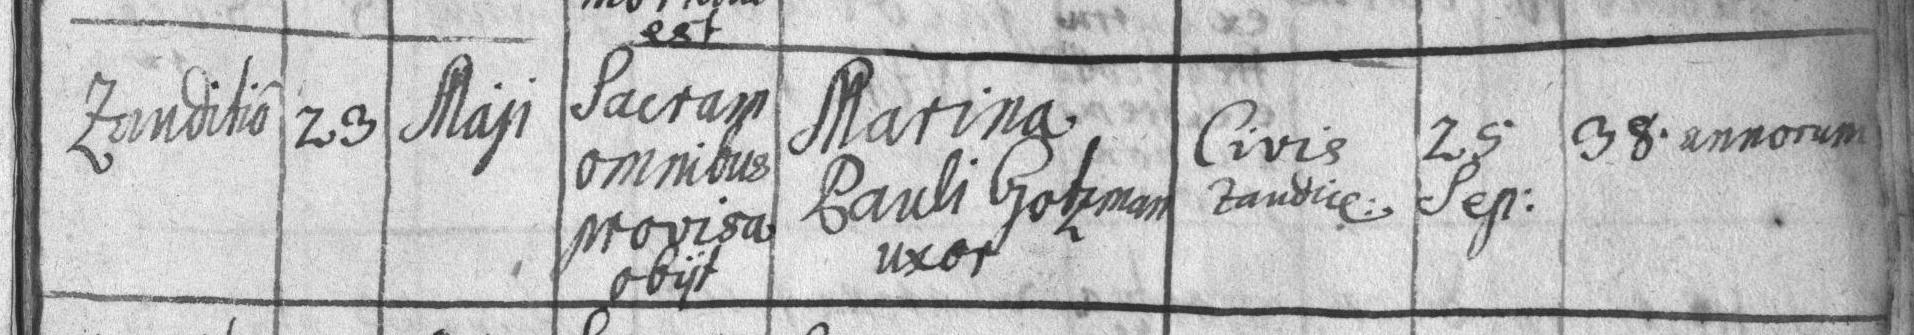 est
Zauditió 23 Maji Sacram omnibus provisa obijt Marina Pauli Gotzman uxor Civis Zaudice: 25 Sep: 38. annorum